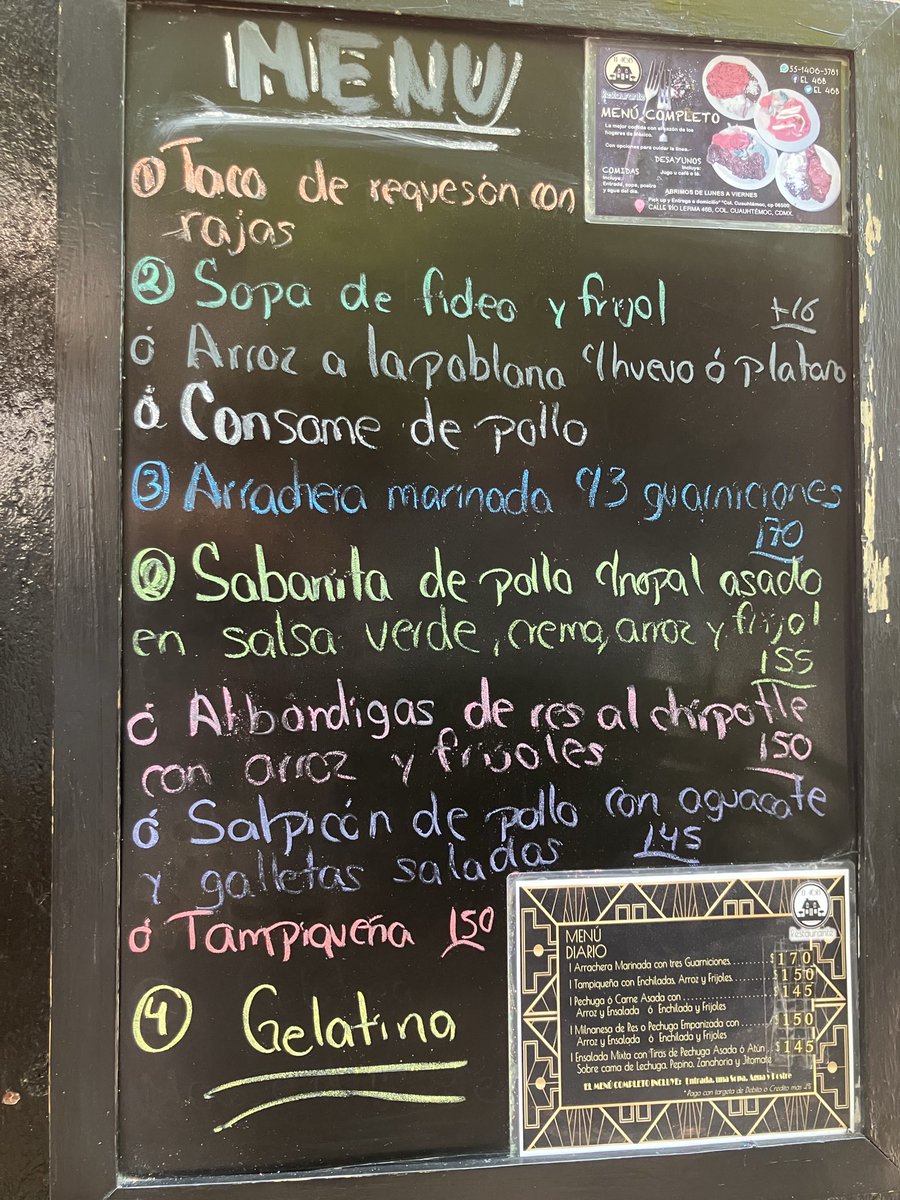 MENU
① Taco de requesón con
rajas
② Sopa de fideo y frijol +16
ó Arroz a la poblana c/huevo ó platano
ó Consome de pollo
③ Arrachera marinada c/3 guarniciones
170
Sabanita de pollo c/nopal asado
en salsa verde, crema, arroz y frijol
155
ó Albondigas de res al chipotle
con arroz y frijoles 150
ó Salpicón de pollo con aguacate
y galletas saladas 145
ó Tampiqueña 150
④ Gelatina
Restaurante
55-1406-3781
EL 46B
EL 46B
MENÚ COMPLETO
La mejor comida con el sazón de los
hogares de México.
Con opciones para cuidar la línea.-
DESAYUNOS
Incluye:
Jugo u café o té.
COMIDAS
Incluye:
Entrada, sopa, postre
y agua del día.
ABRIMOS DE LUNES A VIERNES
Pick up y Entrega a domicilio* *Col. Cuauhtémoc, cp 06500
CALLE RÍO LERMA 46B, COL. CUAUHTÉMOC, CDMX.
Restaurante
MENÚ
DIARIO
1 Arrachera Marinada con tres Guarniciones. $170
1 Tampiqueña con Enchiladas, Arroz y Frijoles. $150
1 Pechuga ó Carne Asada con $145
Arroz y Ensalada ó Enchilada y Frijoles
1 Milnanesa de Res o Pechuga Empanizada con $150
Arroz y Ensalada ó Enchilada y Frijoles
1 Ensalada Mixta con Tiras de Pechuga Asada ó Atún $145
Sobre cama de Lechuga, Pepino, Zanahoria y Jitomate
EL MENÚ COMPLETO INCLUYE: Entrada, una Sopa, Agua y Postre
*Pago con targeta de Debito o Credito mas